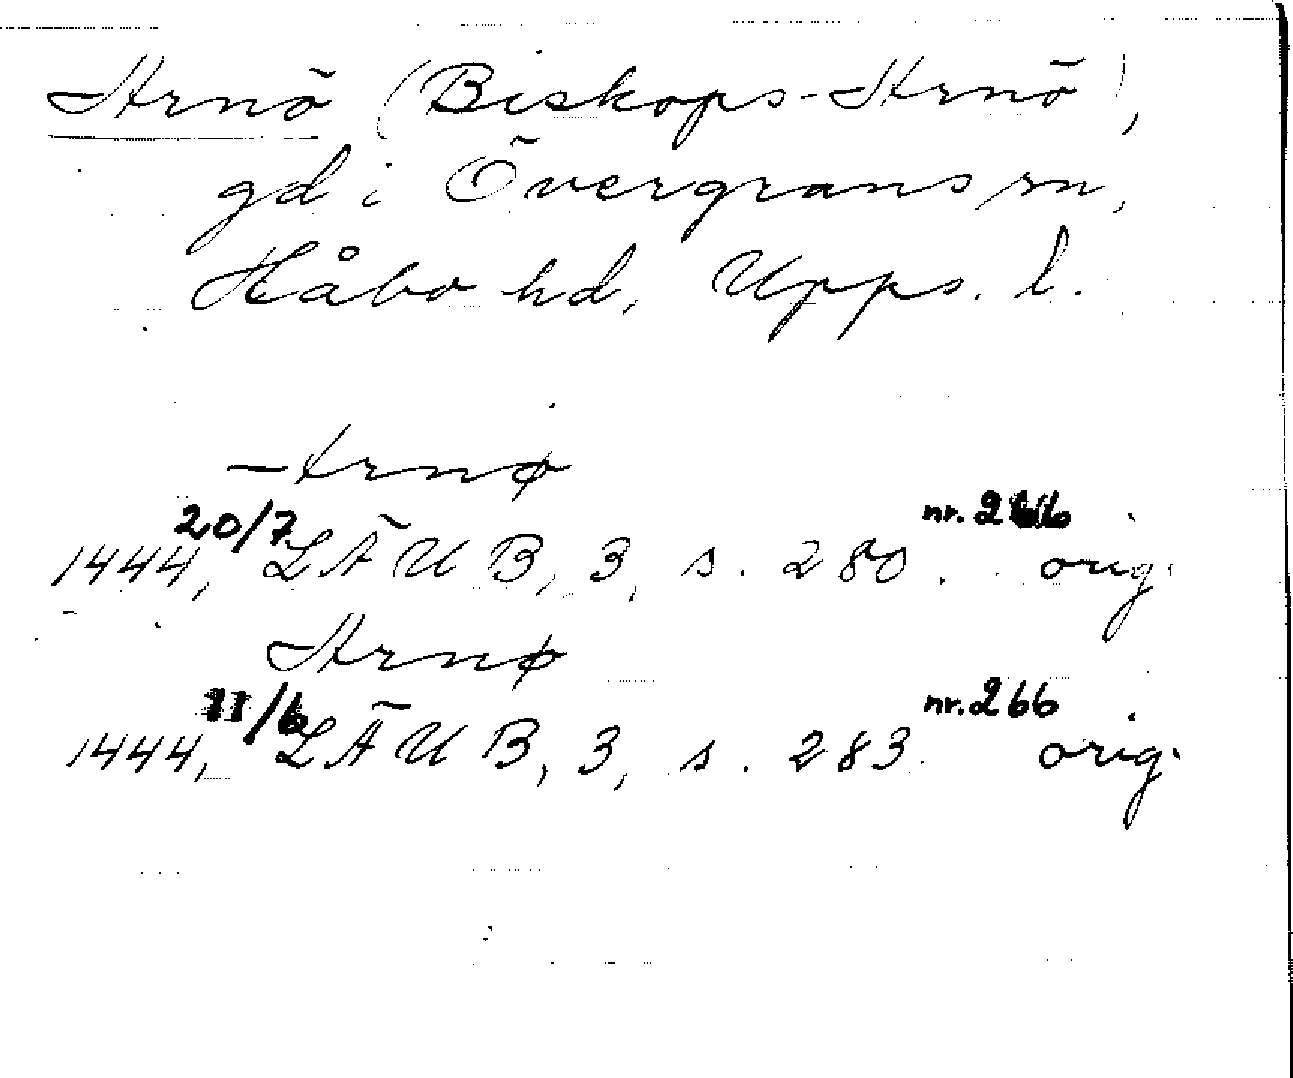 Arnö (Biskops-Arnö),
gd i Övergrans sn,
Håbo hd, Upps. l.
Arnø
20/7 nr.
1444, LÄUB, 3, s. 280. orig.
Arnø
11/6 nr. 266
1444, LÄUB, 3, s. 283. orig.